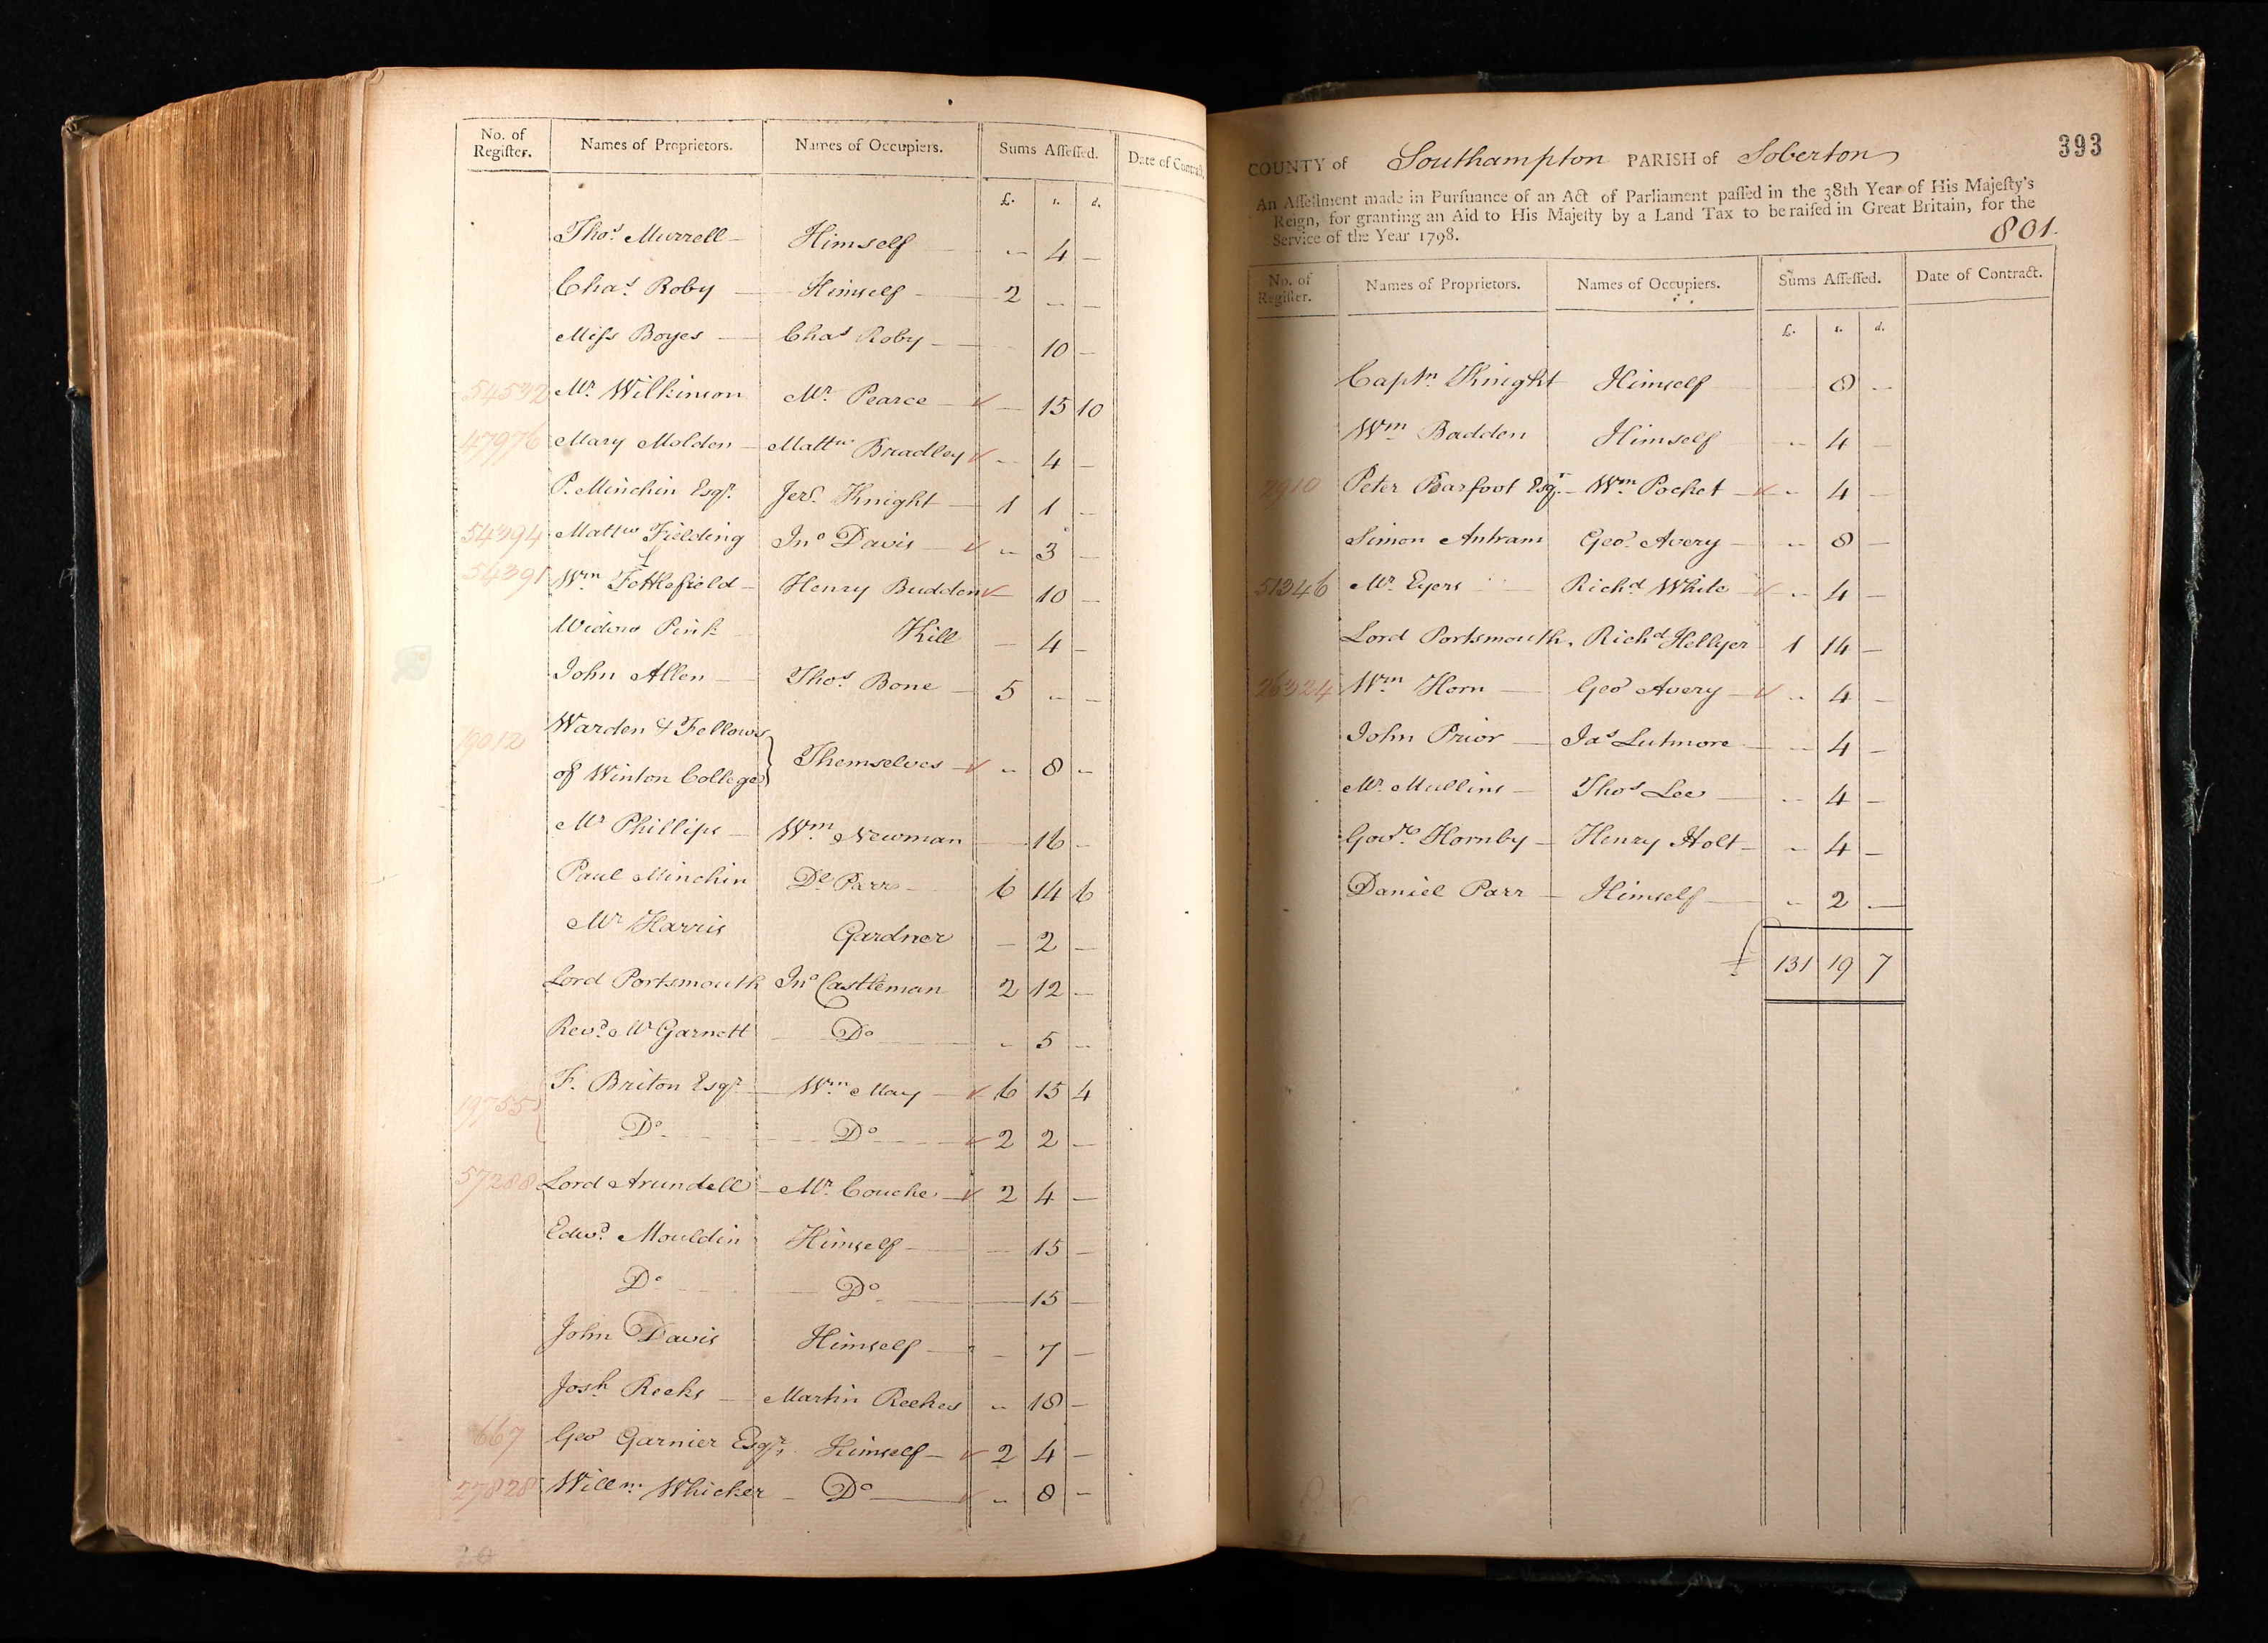 No. of Register. Names of Proprietors. Names of Occupiers. Sums Assessed. Date of Contract
£. s. d.
Thos. Murrell Himself " 4 —
Chas. Roby — Himself — 2 " —
Miss Boyes — Chas Roby — 10 —
54532 Mr. Wilkinson Mr. Pearce — 15 10
47976 Mary Molden — Mattw Bradley " 4 —
P. Minchin Esqr. Jers. Knight — 1 1 —
54394 Mattw Fielding Jno Davis — " 3 —
54391 Wm Henry Budden — 10 —
Widow Pink Hill — 4 —
John Allen — Thos. Bone — 5 " —
19012 Warden & Fellows
of Winton College } Themselves — " 8 "
Mr Phillips — Wm Newman — 16 —
Paul Minchin Dl Parr — 6 14 6
Mr Harris Gardner — 2 —
Lord Portsmouth Jno Castleman 2 12 —
Revd. Mr Garnett — Do — " 5 —
19755 { F. Briton Esqr. — Wm May — 6 15 4
Do — Do — 2 2 —
57288 Lord Arundell — Mr. Couche — 2 4 —
Edwd. Mouldin Himself — 15 —
Do Do — 15 —
John Davis Himself — 7 —
Josh Reeks — Martin Reekes " 18 —
667 Geo Garnier Esqr. Himself — 2 4 —
27828 Willm. Whicker — Do — " 8 —
393
COUNTY of Southampton PARISH of Soberton
An Assessment made in Pursuance of an Act of Parliament passed in the 38th Year of His Majesty's
Reign, for granting an Aid to His Majesty by a Land Tax to be raised in Great Britain, for the
Service of the Year 1798.
801.
No. of Register. Names of Proprietors. Names of Occupiers. Sums Assessed. Date of Contract.
£. s. d.
Captn. Knight Himself — 8 —
Wm Badden Himself — " 4 —
2910 Peter Barfoot Esqr. — Wm. Pocket — " 4 —
Simon Antram Geo. Avery — " 8 —
51346 Mr. Eyers Richd. White — " 4 —
Lord Portsmouth. Richd Hellyer 1 14 —
26324 Wm Horn — Geo Avery — " 4 —
John Prior — Jas Lutmore — " 4 —
Mr. Mullins — Thos Lee — " 4 —
Govr. Hornby — Henry Holt — " 4 —
Daniel Parr — Himself — " 2 —
£ 131 19 7